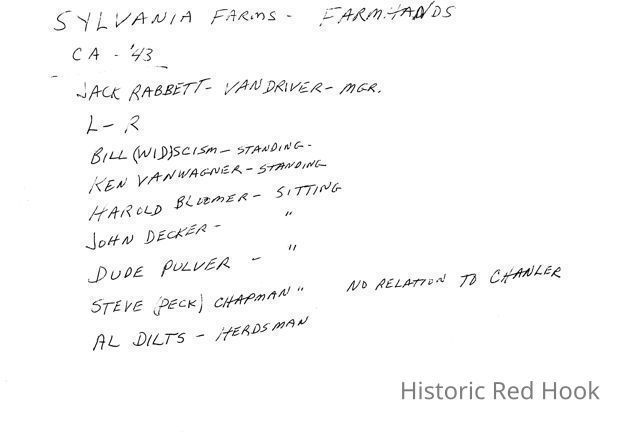 SYLVANIA FARMS - FARMHANDS
CA - '43
JACK RABBETT - VAN DRIVER - MGR.
L - R
BILL (WID) SCISM - STANDING -
KEN VANWAGNER - STANDING
HAROLD BLOOMER - SITTING
JOHN DECKER - "
DUDE PULVER - "
STEVE (PECK) CHAPMAN " NO RELATION TO CHANLER
AL DILTS - HERDSMAN
Historic Red Hook